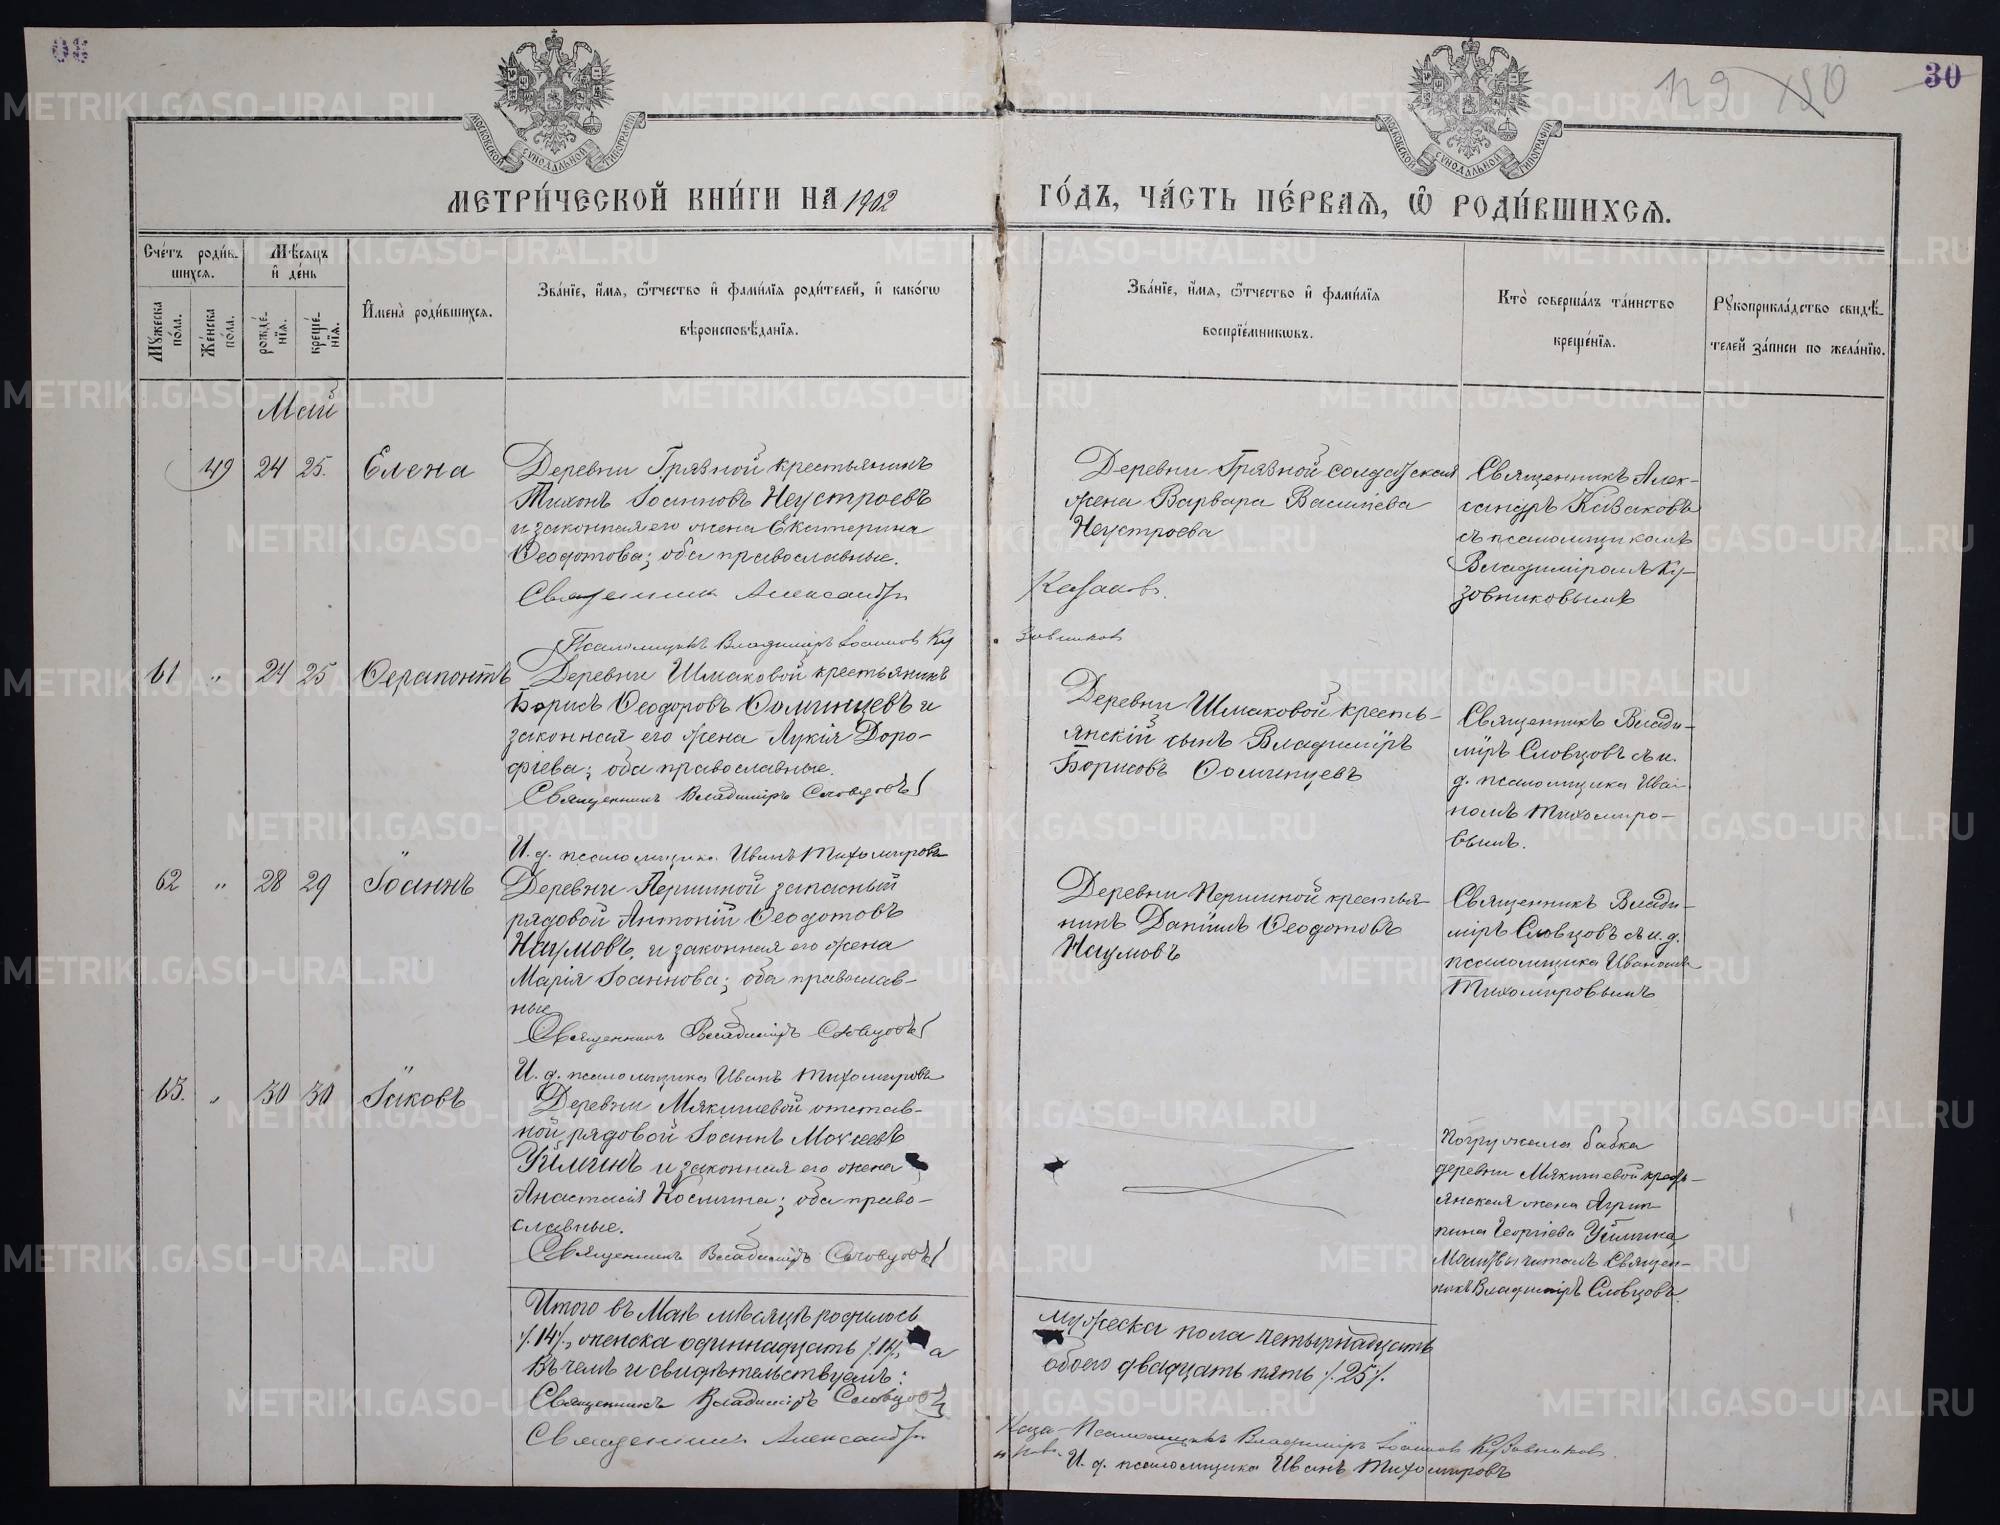 30
129
150
30
МОСКОВСКОЙ СУНОДАЛЬНОЙ ТИПОГРАФІИ
МОСКОВСКОЙ СУНОДАЛЬНОЙ ТИПОГРАФІИ
МЕТРИ́ЧЕСКОЙ КНИ́ГИ НА 1902
ГО́ДЪ, ЧА́СТЬ ПЕ́РВАѦ, Ѽ РОДИ́ВШИХСѦ.
Сче́тъ роди́в-
шихсѧ.
Мꙋжеска по́ла.
Же́нска по́ла.
Мѣ́сѧцъ
и҆ де́нь
рожде́нїѧ.
креще́нїѧ.
И҆мена̀ роди́вшихсѧ.
Зва́нїе, и҆́мѧ, ѻ҆́тчество и҆ фами́лїѧ роди́телей, и҆ како́гѡ
вѣроисповѣ́данїѧ.
Зва́нїе, и҆́мѧ, ѻ҆́тчество и҆ фами́лїѧ
воспрїе́мникѡвъ.
Кто̀ соверша́лъ та́инство
креще́нїѧ.
Рꙋкоприкла́дство свидѣ́-
телей за́писи по жела́нїю.
Май
49 24 25. Елена
Деревни Грязной крестьянинъ
Тихонъ Іоанновъ Неустроевъ
и законная его жена Екатерина
Ѳеодотова; оба православные.
Священник Александръ
Деревни Грязной солдатская
жена Варвара Васильева
Неустроева
Казаковъ.
Священникъ Алек-
сандръ Казаковъ
съ псаломщикомъ
Владиміромъ Ку-
зовниковымъ
Псаломщикъ Владиміръ Іоанновъ Ку
зовников
61 " 24 25 Ѳерапонтъ
Деревни Шмаковой крестьянинъ
Борисъ Ѳеодоровъ Ѳоминцевъ и
законная его жена Лукія Доро-
фіева; оба православные.
Священникъ Владиміръ Словцовъ
И. д. псаломщика Иванъ Тихомировъ
Деревни Шмаковой кресть-
янскій сынъ Владиміръ
Борисовъ Ѳоминцевъ
Священникъ Влади-
міръ Словцовъ съ и.
д. псаломщика Ива-
номъ Тихомиро-
вымъ.
62 " 28 29 Іоаннъ
Деревни Першиной запасный
рядовой Антоній Ѳеодотовъ
Наумовъ, и законная его жена
Марія Іоаннова; оба православ-
ные
Священникъ Владиміръ Словцовъ
И. д. псаломщика Иванъ Тихомировъ
Деревни Першиной крестья-
нинъ Даніилъ Ѳеодотовъ
Наумовъ
Священникъ Влади-
міръ Словцовъ съ и. д.
псаломщика Иваномъ
Тихомировымъ
63. " 30 30 Іаковъ
Деревни Мякишевой отстав-
ной рядовой Іоаннъ Моисеевъ
Уйминъ и законная его жена
Анастасія Космина; оба право-
славные.
Священникъ Владиміръ Словцовъ
Погружала бабка
деревни Мякишевой кресть-
янская жена Агрип-
пина Георгіева Уймина
Молитвы читалъ Священ-
никъ Владиміръ Словцовъ.
Итого въ Маѣ мѣсяцѣ родилось
мужеска пола четырнадцать
/.14/., женска одиннадцать /.11/., а
обоего двадцать пять /.25/.
Въ чемъ и свидѣтельствуемъ:
Священникъ Владиміръ Словцовъ
Священник Александръ Каза-
ковъ.
Псаломщикъ Владиміръ Іоанновъ Кузовниковъ.
И. д. псаломщика Иванъ Тихомировъ
METRIKI.GASO-URAL.RU